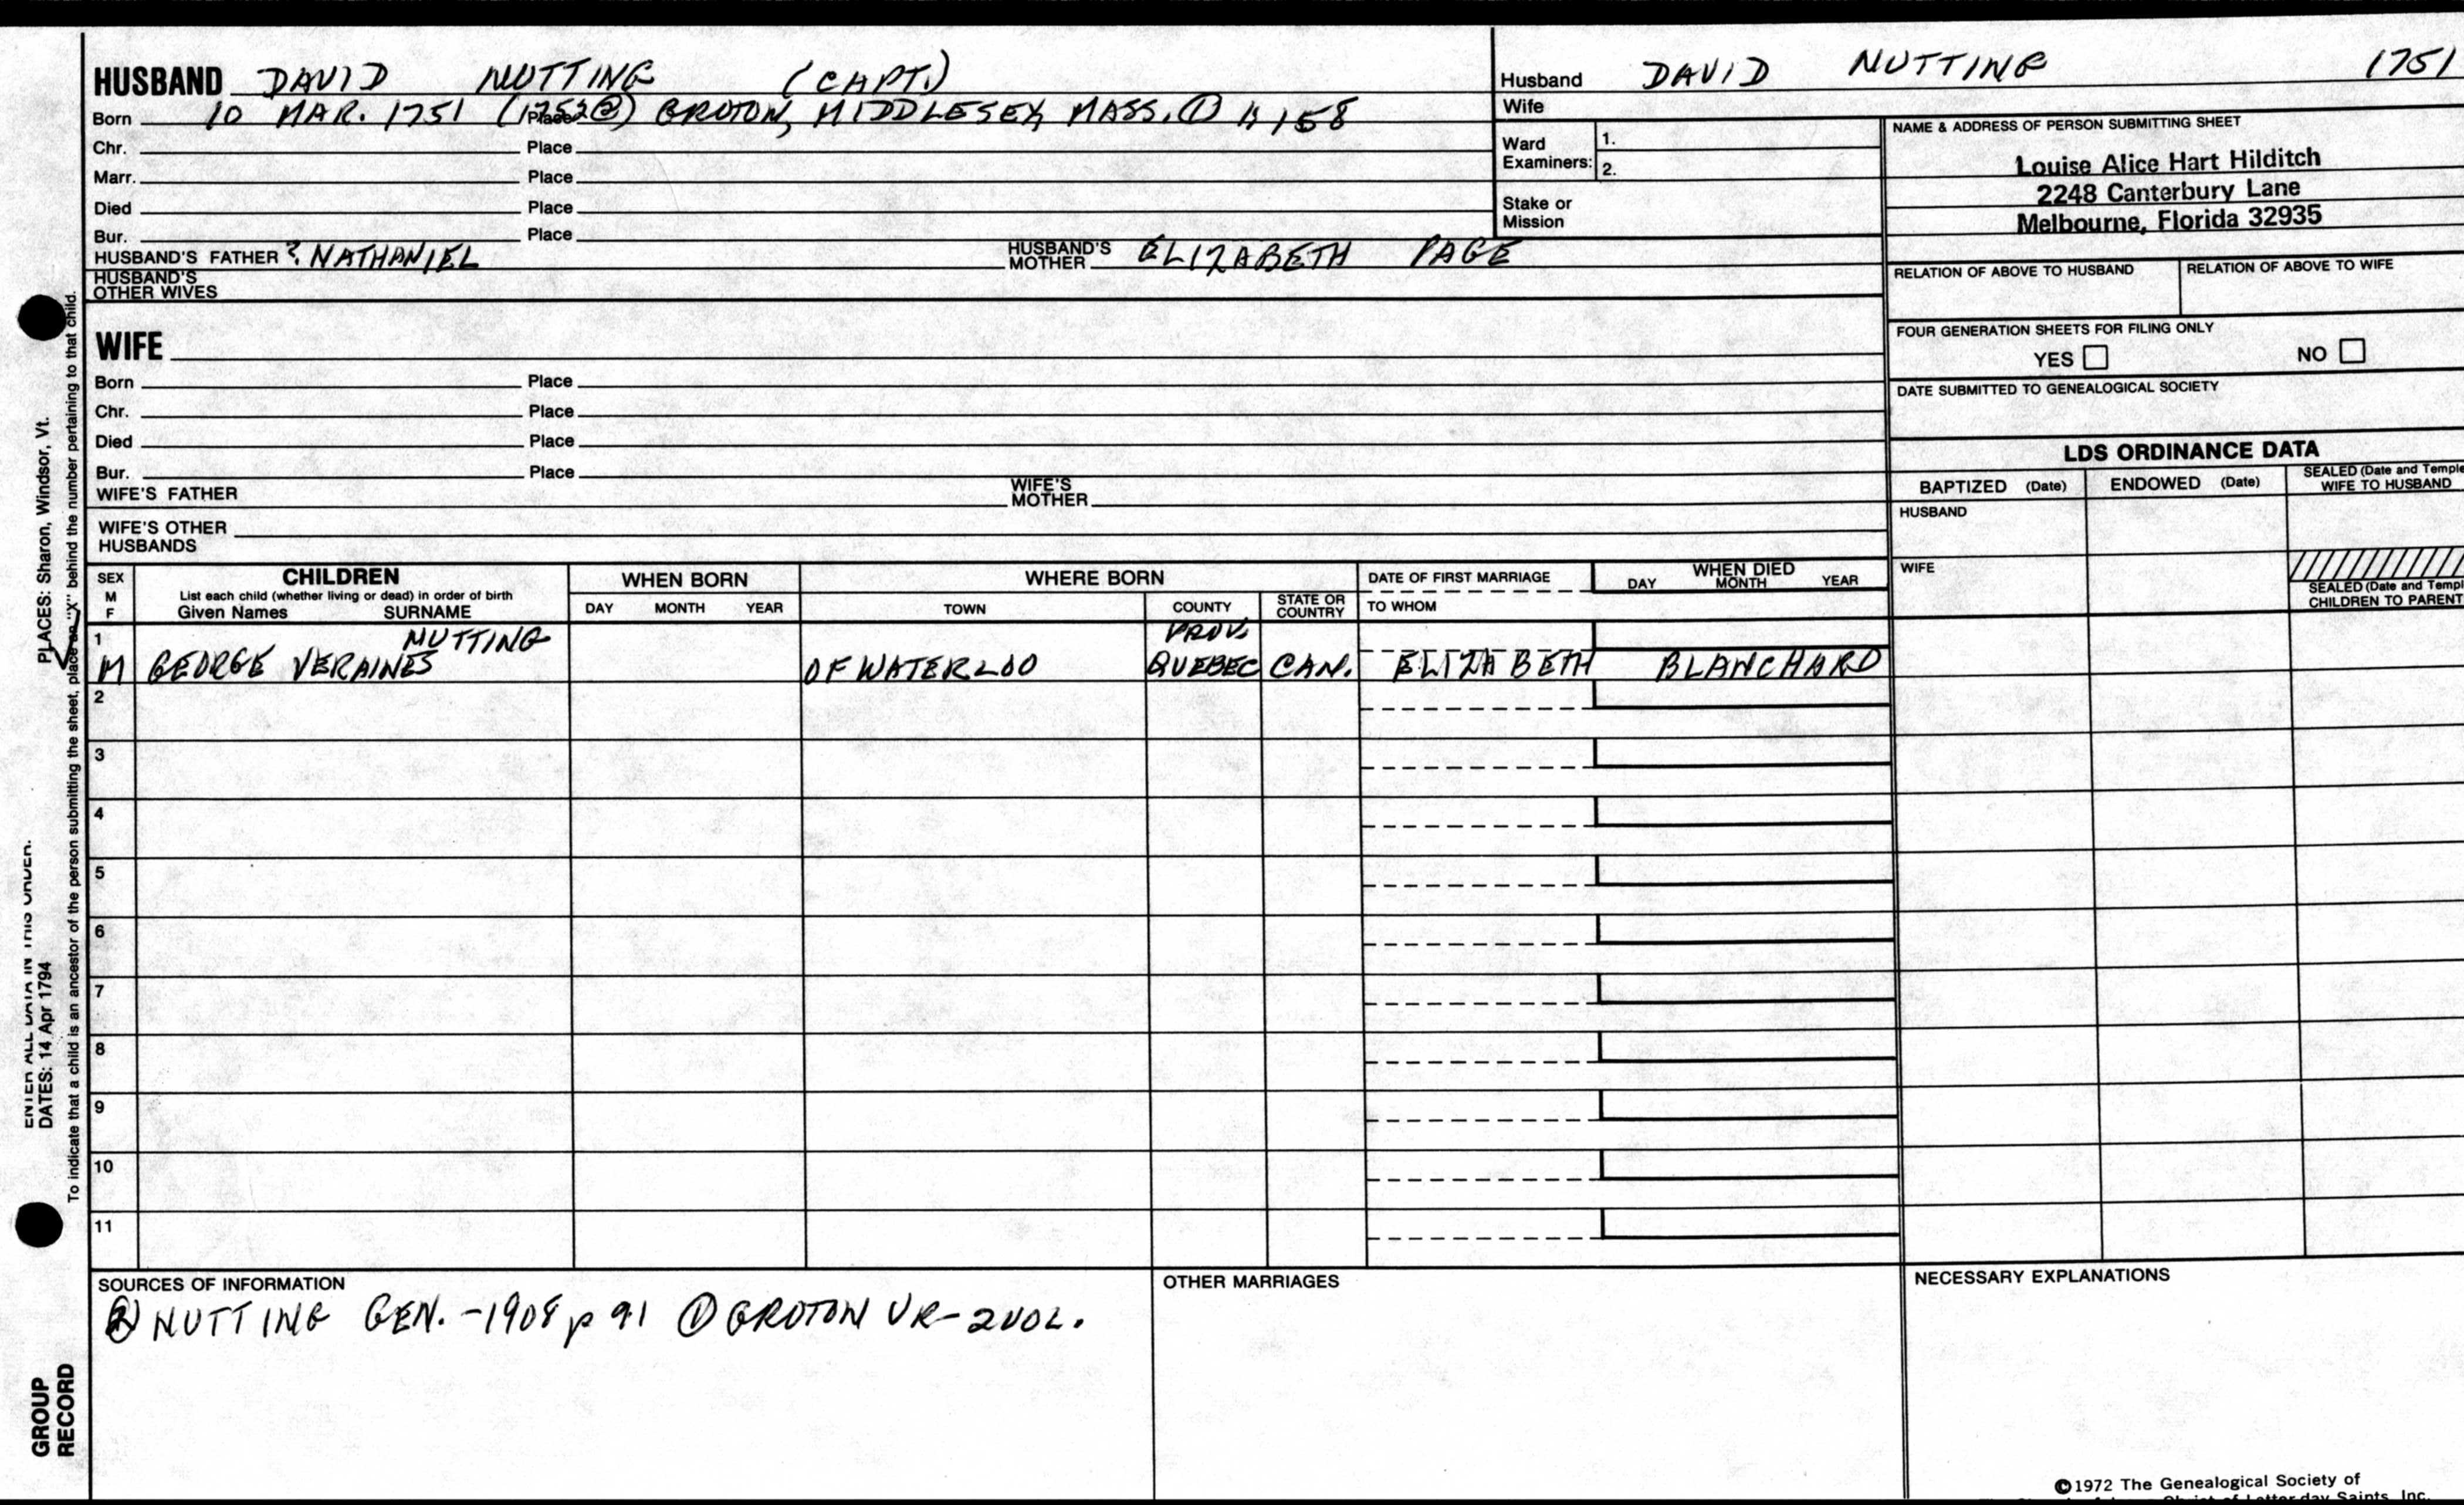 HUSBAND DAVID NUTTING (CAPT.)
Born 10 MAR. 1751 (1752②) Place GROTON, MIDDLESEX, MASS. ① p158
Chr. Place
Marr. Place
Died Place
Bur. Place
HUSBAND'S FATHER ? NATHANIEL HUSBAND'S MOTHER ELIZABETH PAGE
HUSBAND'S
OTHER WIVES
WIFE
Born Place
Chr. Place
Died Place
Bur. Place
WIFE'S FATHER WIFE'S MOTHER
WIFE'S OTHER
HUSBANDS
Husband DAVID NUTTING 1751
Wife
Ward
Examiners: 1.
2.
Stake or
Mission
NAME & ADDRESS OF PERSON SUBMITTING SHEET
Louise Alice Hart Hilditch
2248 Canterbury Lane
Melbourne, Florida 32935
RELATION OF ABOVE TO HUSBAND RELATION OF ABOVE TO WIFE
FOUR GENERATION SHEETS FOR FILING ONLY
YES NO
DATE SUBMITTED TO GENEALOGICAL SOCIETY
LDS ORDINANCE DATA
BAPTIZED (Date) ENDOWED (Date) SEALED (Date and Temple
WIFE TO HUSBAND
HUSBAND
WIFE
SEALED (Date and Templ
CHILDREN TO PARENT
SEX
M
F
CHILDREN
List each child (whether living or dead) in order of birth
Given Names SURNAME
WHEN BORN
DAY MONTH YEAR
WHERE BORN
TOWN COUNTY STATE OR COUNTRY
DATE OF FIRST MARRIAGE
TO WHOM
WHEN DIED
DAY MONTH YEAR
1 NUTTING PROV.
M GEORGE VERAINES OF WATERLOO QUEBEC CAN. ELIZABETH BLANCHARD
2
3
4
5
6
7
8
9
10
11
SOURCES OF INFORMATION
② NUTTING GEN. -1908 p 91 ① GROTON VR- 2VOL.
OTHER MARRIAGES
NECESSARY EXPLANATIONS
©1972 The Genealogical Society of
Saints, Inc.
ENTER ALL DATA IN THIS ORDER.
DATES: 14 Apr 1794 PLACES: Sharon, Windsor, Vt.
To indicate that a child is an ancestor of the person submitting the sheet, place an "X" behind the number pertaining to that child.
GROUP
RECORD